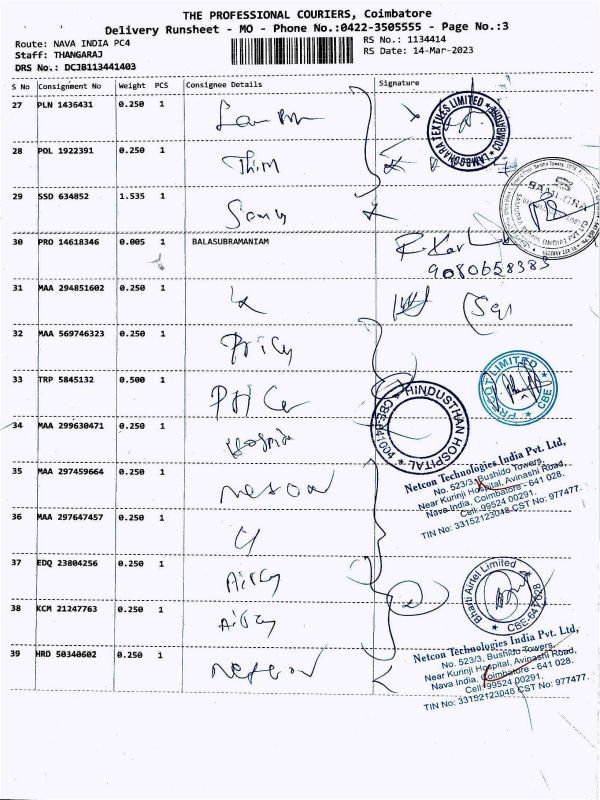 THE PROFESSIONAL COURIERS, Coimbatore
Delivery Runsheet - MO - Phone No.:0422-3505555 - Page No.:3
Route: NAVA INDIA PC4
Staff: THANGARAJ
DRS No.: DCJB113441403
RS No.: 1134414
RS Date: 14-Mar-2023
S No Consignment No Weight PCS Consignee Details Signature
27 PLN 1436431 0.250 1
LAMBODHARA TEXTILES LIMITED
28 POL 1922391 0.250 1
29 SSD 634852 1.535 1
30 PRO 14618346 0.005 1 BALASUBRAMANIAM
9080658383
31 MAA 294851602 0.250 1
32 MAA 569746323 0.250 1
Pricy
33 TRP 5845132 0.500 1
PRICOT LIMITED CBE
34 MAA 299630471 0.250 1
HINDUSTHAN HOSPITAL
35 MAA 297459664 0.250 1
Netcon Technologies India Pvt. Ltd,
No. 523/3, Bushido Towers,
Near Kurinji Hospital, Avinashi Road,
Nava India, Coimbatore - 641 028.
Cell: 99524 00291.
TIN No: 33152123048 CST No: 977477.
36 MAA 297647457 0.250 1
37 EDQ 23804256 0.250 1
Airtay
Bharti Airtel Limited
CBE-641 028
38 KCM 21247763 0.250 1
Airtay
39 HRD 50340602 0.250 1
Netcon
Netcon Technologies India Pvt. Ltd,
No. 523/3, Bushido Towers,
Near Kurinji Hospital, Avinashi Road,
Nava India, Coimbatore - 641 028.
Cell: 99524 00291.
TIN No: 33152123048 CST No: 977477.